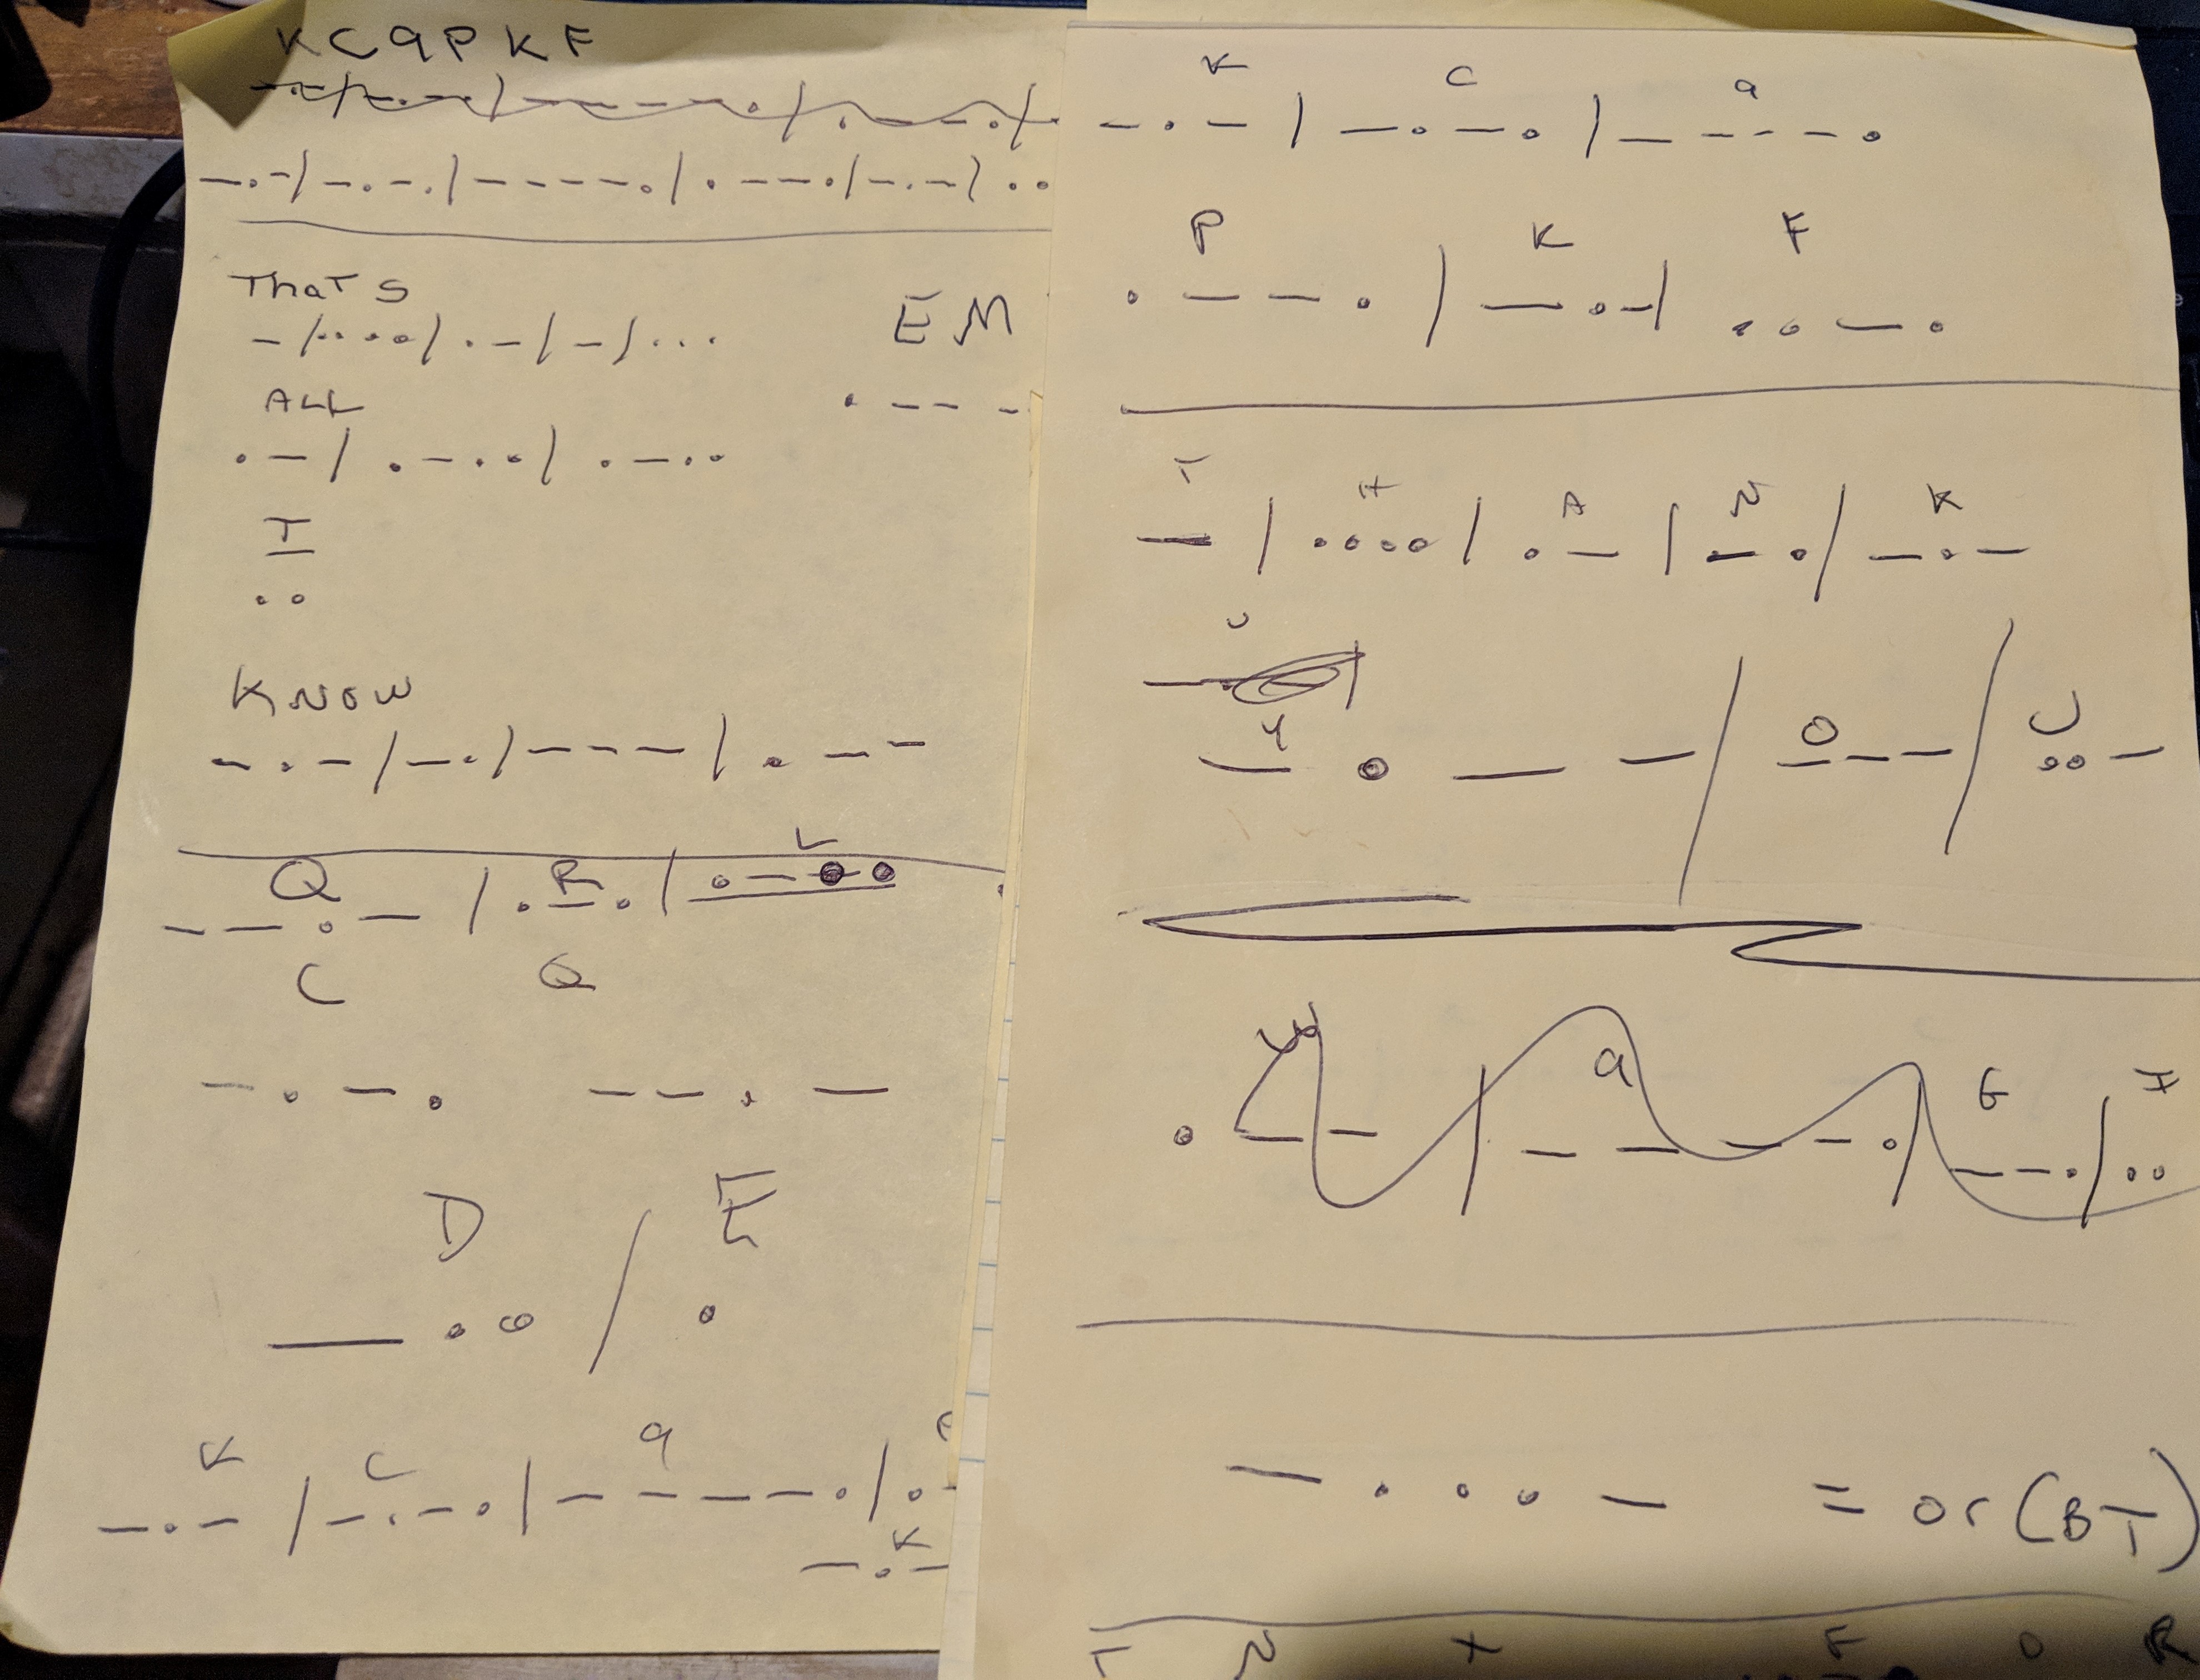 KC9PKF
-.-/-.-./----./.--./-.-/..
THAT'S
-/..../.-/-/...
EM
.---
ALL
.-/.-../.-..
I
..
KNOW
-.-/-./---/.--
Q R L
--.-/.-./.-..
C Q
-.-. --.-
D / E
-../.
K C 9
-.-/-.-./----./.-
K
-.-
K C 9
-.-/-.-./----.
P K F
.--./-.-/..-.
T H A N K
-/..../.-/-./-.-
U
Y O U
-.--/---/..-
W 9 G I
.--/----./--./..
-...- = or (BT)
T N X F O R